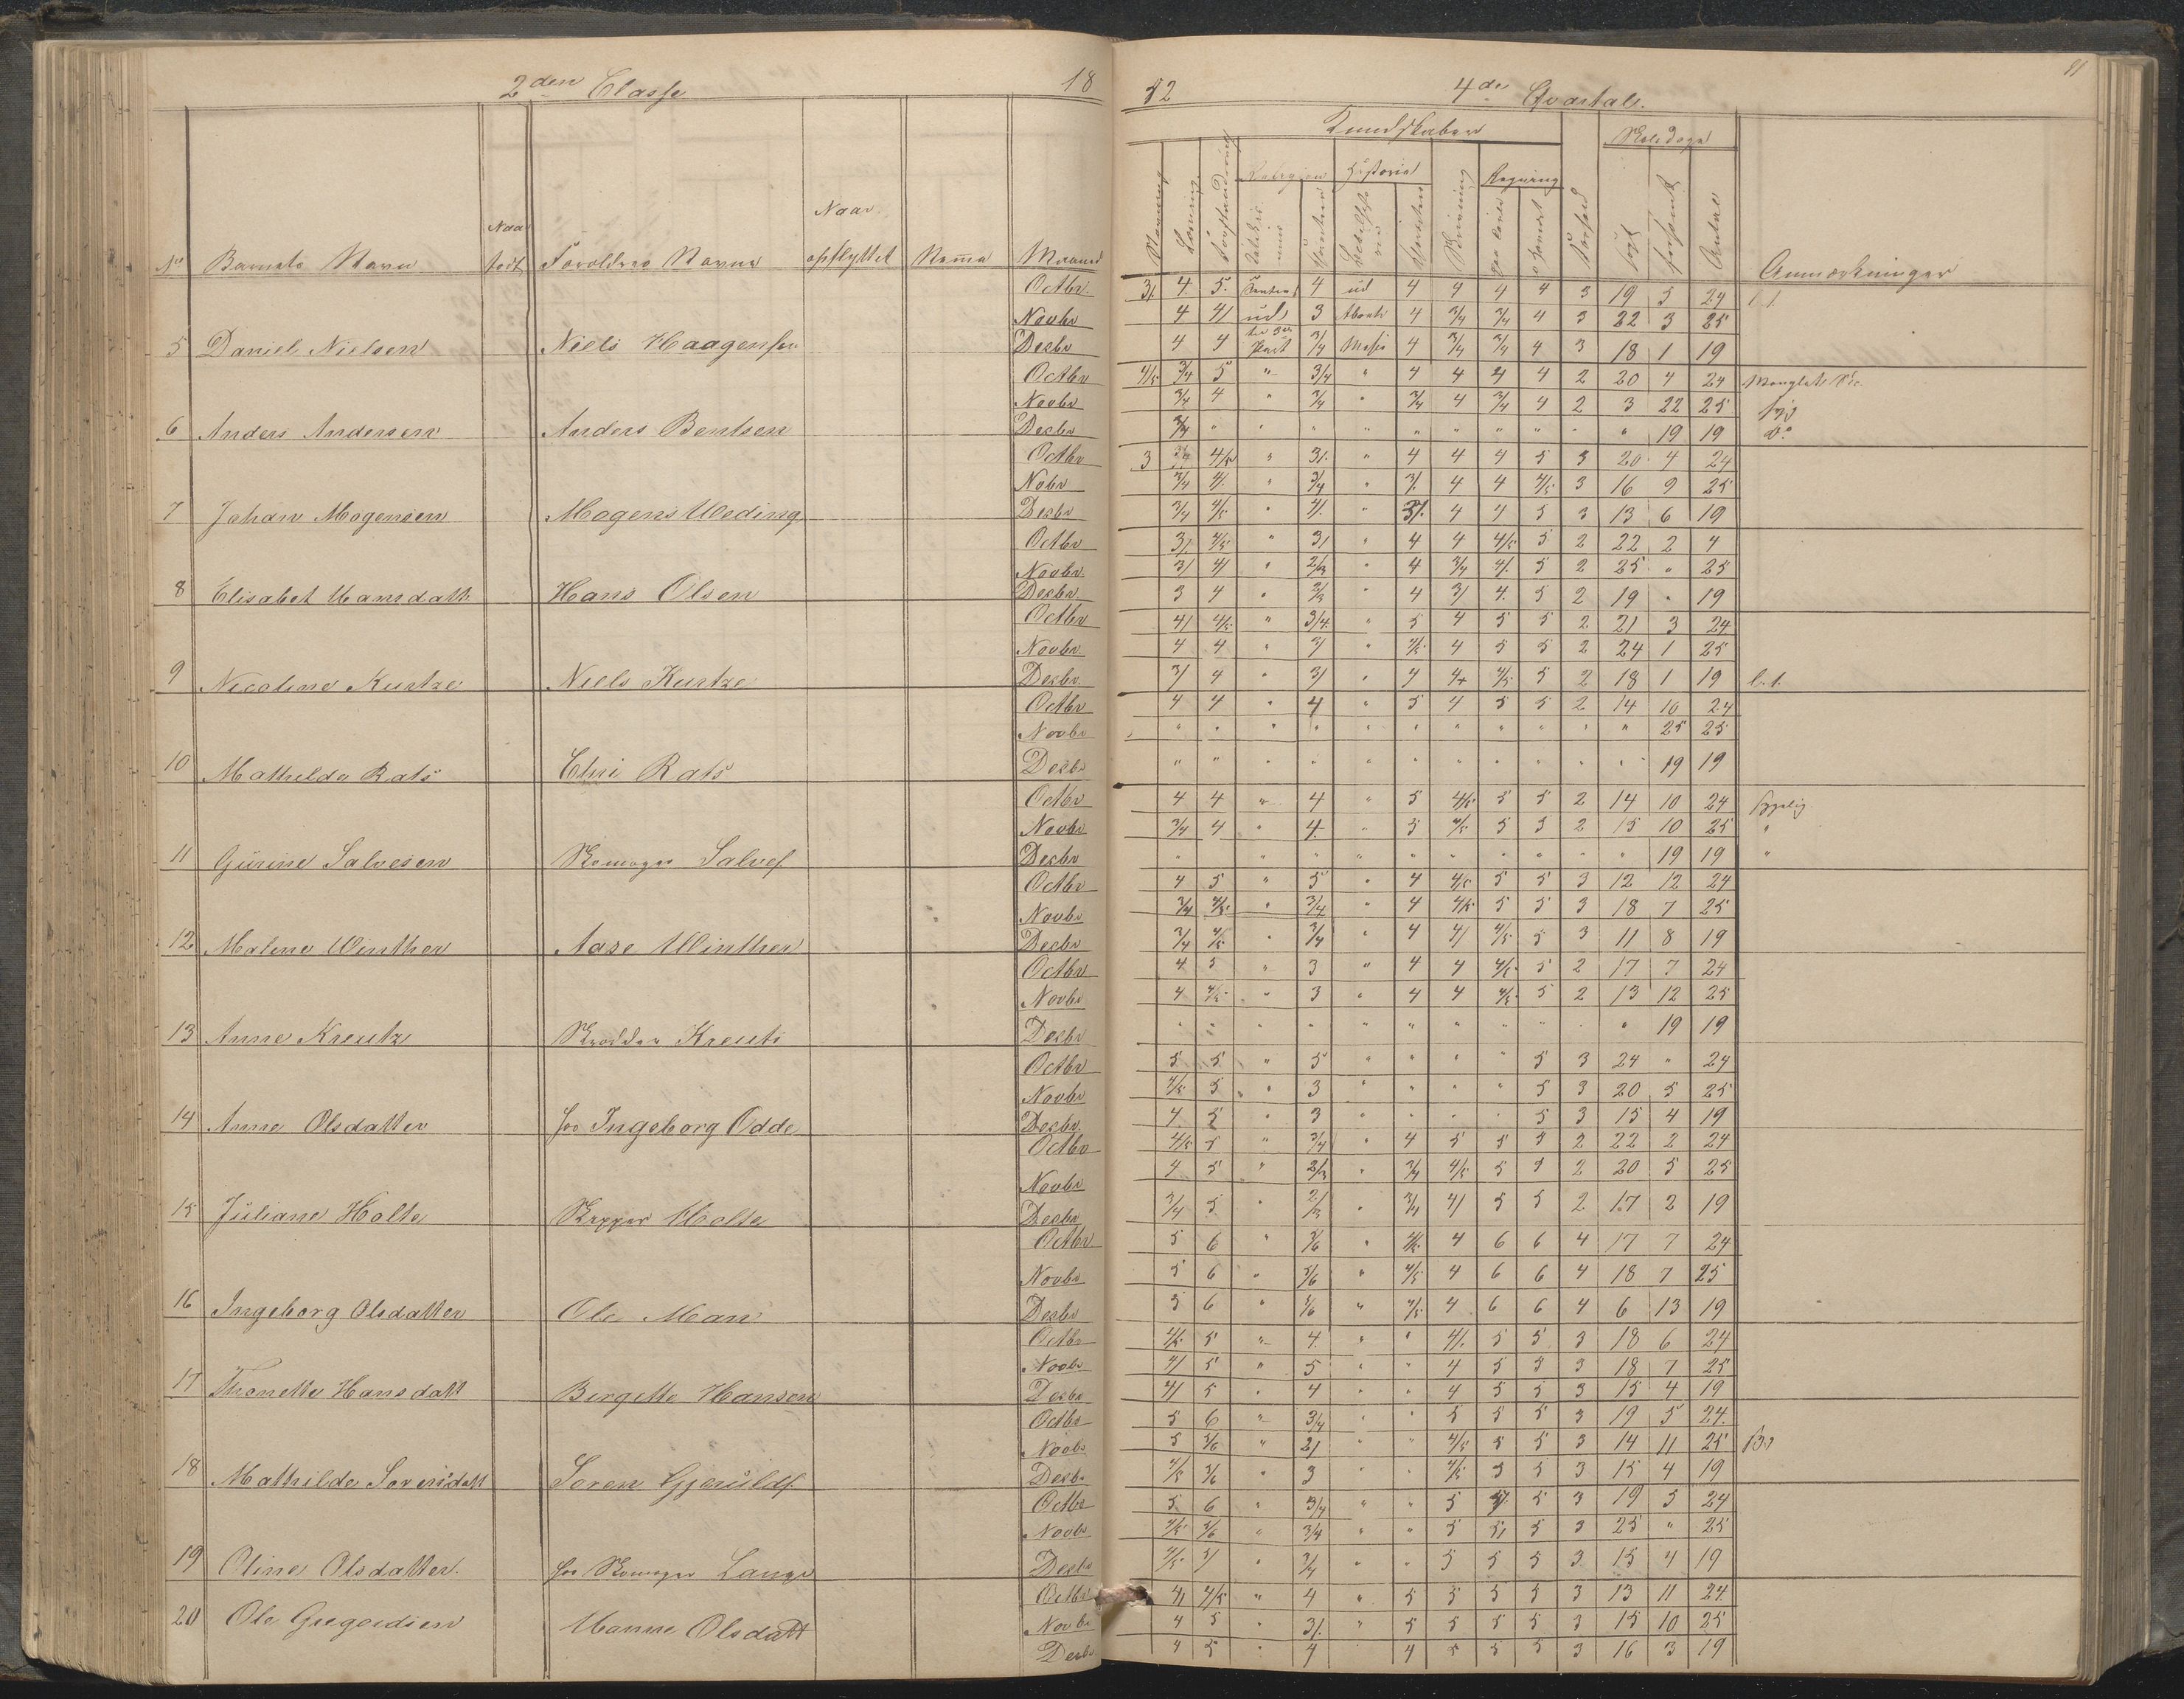 2den Classe 18
52 4de Qvartal. 91
Kundskaber Skoledage
Religion Historie Regning
No Barnets Navn Naar født Forældres Navne Naar opflyttet Maaned
Læsning Skrivning Forhold Antal Anmærkninger
Octbr. 3/. 4. 5. 4 ud 4 4 4 4 3 19 5 24
Novbr 4 4/ ud 3 4 3/4 3/4 4 3 22 3 25
5 Daniel Nielsen Niels Haagensen Decbr 4 4 3/4 4 3/4 3/4 4 3 18 1 19
Octbr 4/5 3/4 5 " 3/4 " 4 4 4 4 2 20 4 24
Novbr 3/4 4 " 3/4 " 3/4 4 3/4 4 2 3 22 25
6 Anders Andersen Anders Bentsen Decbr 3/4 " " " " " " " " " " 19 19 Do
Octbr 3 3/4 4/5 " 3/. " 4 4 4 5 3 20 4 24
Nobr 3/4 4/. " 3/4 " 3/. 4 4 4/5 3 16 9 25
7 Johan Mogensen Mogens Weding Decbr 3/4 4/5 " 4/. " 3/. 4 4 5 3 13 6 19
Octbr 3/. 4/5 " 3/ " 4 4 4/5 5 2 22 2 4
Novbr. 3/ 4/ " 2/3 " 4 3/4 4/. 5 2 25 " 25
8 Elisabet Hansdatt. Hans Olsen Decbr 3 4 " 2/3 " 4 3/ 4. 5 2 19 " 19
Octbr 4/ 4/5 " 3/4. " 5 4 5 5 2 21 3 24
Novbr. 4 4 " 3/ " 4/5 4 5 5 2 24 1 25
9 Nicoline Kurtze Niels Kurtze Decbr. 3/ 4 " 3/ " 4 4 4/5 5 2 18 1 19
Octbr 4 4 " 4 " 5 4 5 5 2 14 10 24
Novbr " " " " " " " " " " " 25 25
10 Mathilda Rats Elni Rats Decbr " " " " " " " " " " " 19 19
Octbr 4 4 " 4 " 5 4/5 5 5 2 14 10 24
Novbr 3/4 4 " 4 " 5 4/5 5 5 2 15 10 25 "
11 Gurine Salvesen Skomager Salves. Decbr " " " " " " " " " " 19 19 "
Octbr 4 5 " 5 " 4 4/5 5 5 3 12 12 24
Novbr 3/4 4/5 " 3/4 " 4 4/5 5 5 3 18 7 25
12 Malene Winther Aase Winther Decbr 3/4 4/5 " 3/4 " 4 4/ 4/5 5 3 11 8 19
Octbr 4 5 " 3 " 4 4 4/5 5 2 17 7 24
Novbr 4 4/5 " 3 " 4 4 4/5 5 2 13 12 25
13 Anne Kreutz Skrædder Kreutz Decbr " " " " " " " " " " " 19 19
Octbr 5 5 " 5 " " " " 5 3 24 " 24
Novbr 4/5 5 " 3 " " " " 5 3 20 5 25
14 Anne Olsdatter hos Ingeborg Odde Decbr. 4 5 " 3 " " " " 5 3 15 4 19
Octbr 4/5 5 " 3/4 " 4 5 5 5 2 22 2 24
Novbr 4 5 " 2/3 " 3/4 4/5 5 5 2 20 5 25
15 Juliane Holte Skipper Holte Decbr 3/4 5 " 2/3 " 3/4 4/ 5 5 2 17 2 19
Octbr 5 6 " 5/6 " 4/5 4 6 6 4 17 7 24
Novbr 5 6 " 5/6 " 4/5 4 6 6 4 18 7 25
16 Ingeborg Olsdatter Ole Man Decbr 5 6 " 5/6 " 4/5 4 6 6 4 6 13 19
Octbr 4/5 5 " 4. " " 4/. 5 5 3 18 6 24
Novbr 4/ 5 " 5 " " 4 5 5 3 18 7 25
17 Thonette Hansdatt Bergitte Hansen Decbr 4/ 5 " 4 " " 4 5 5 3 15 4 19
Octbr 5 6 " 3/4 " " 5 5 5 3 19 5 24.
Novbr. 5 5/6 " 2/ " " 4/5 5 5 3 14 11 25
18 Mathilde Sorensdatt Soren Gjeruldf. Decbr 4/5 5/6 " 3 " " 4/5 5 5 3 15 4 19
Octbr 5 6 " 3/4 " " 5 5/. 5 3 19 5 24
Novbr 4/5 5/6 " 3/4 " " 5 5/ 5 3 25 " 25
19 Oline Olsdatter. hos Skomager Lange Decbr 4/5 5/ " 3/4 " " 5 5 5 3 15 4 19
Octbr 4/ 4/5 " 4 " 5 5 5 5 3 13 11 24
20 Ole Gregerdsen Hanne Olsdatt Novbr 4 5 " 3/. " 5 5 5 5 3 15 10 25
Decbr 4 5 " 4 4 5 5 5 3 16 3 19